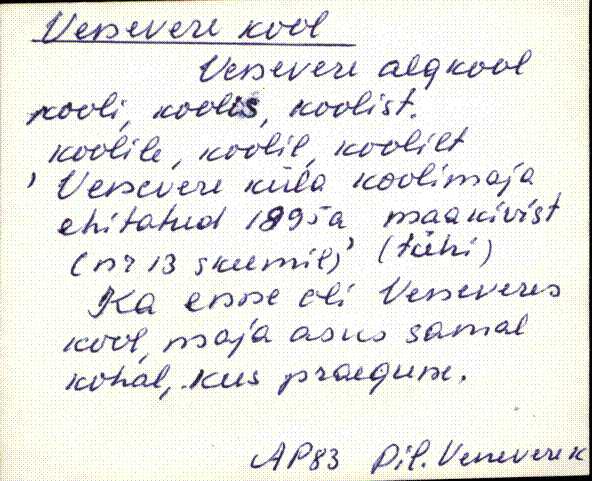 Venevere kool
Venevere algkool
kooli, koolis, koolist.
koolile, koolil, koolilt
' Venevere küla koolimaja
ehitatud 1895a maakivist
(nr 13 skeemil)' (tühi)
Ka enne oli Veneveres
kool, maja asus samal
kohal, kus praegune.
AP83 Pil. Venevere k